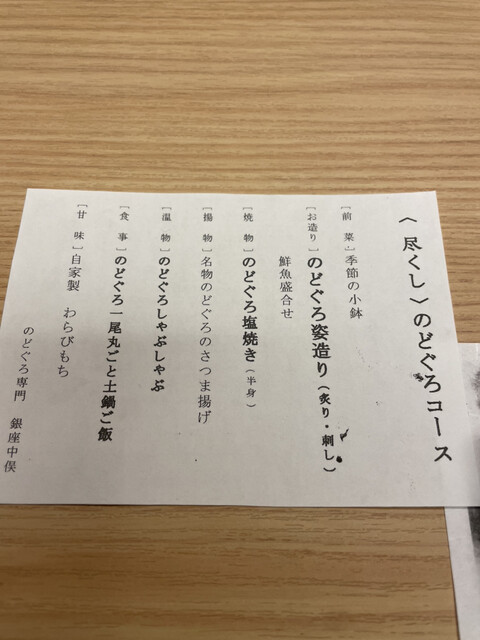 〈 尽くし 〉のどぐろコース
［前　菜］季節の小鉢
［お造り］のどぐろ姿造り（炙り・刺し）
鮮魚盛合せ
［焼　物］のどぐろ塩焼き（半身）
［揚　物］名物のどぐろのさつま揚げ
［温　物］のどぐろしゃぶしゃぶ
［食　事］のどぐろ一尾丸ごと土鍋ご飯
［甘　味］自家製　わらびもち
のどぐろ専門　銀座中俣